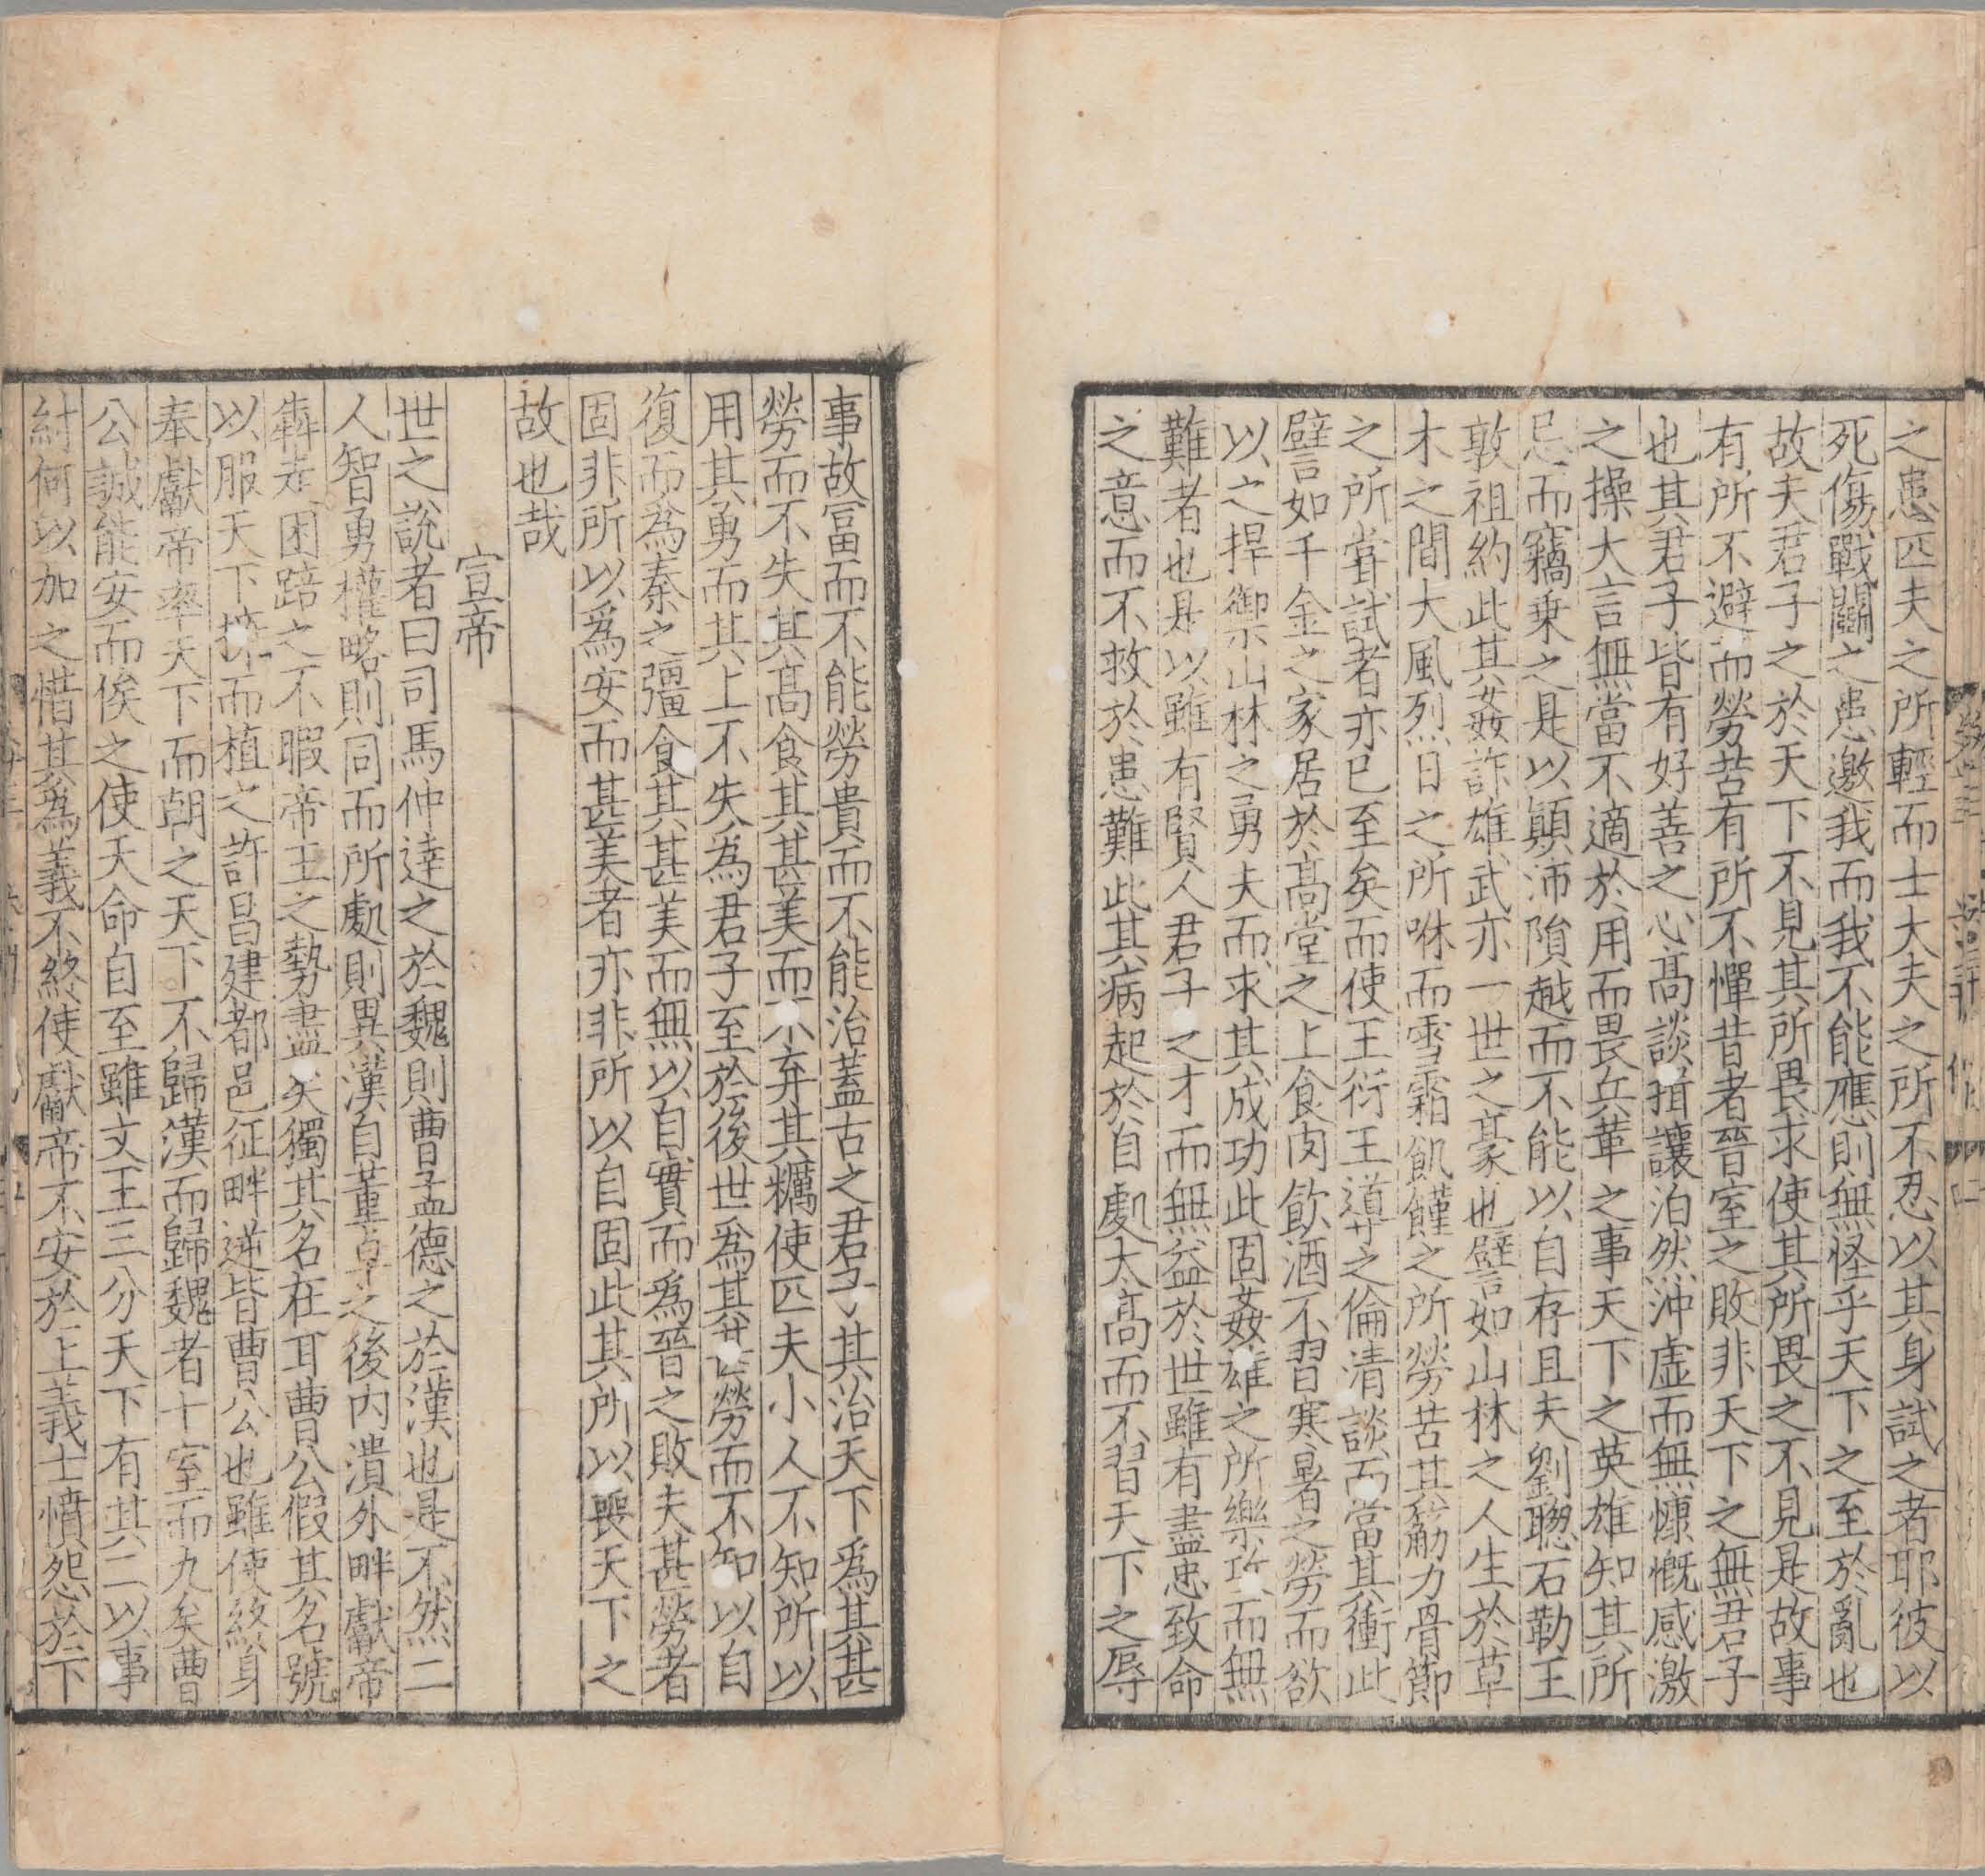 之患匹夫之所輕而士大夫之所不忍以其身試之者耶彼以
死傷戰鬭之患邀我而我不能應則無怪乎天下之至於亂也
故夫君子之於天下不見其所畏求使其所畏之不見是故事
有所不避而勞苦有所不憚昔者晉室之敗非天下之無君子
也其君子皆有好善之心高談揖讓泊然沖虛而無慷慨感激
之操大言無當不適於用而畏兵革之事天下之英雄知其所
忌而竊乗之是以顛沛隕越而不能以自存且夫劉聦石勒王
敦祖約此其姦詐雄武亦一世之豪也譬如山林之人生於草
木之間大風烈日之所咻而雪霜飢饉之所勞苦其筋力骨節
之所甞試者亦已至矣而使王衍王導之倫清談而當其衝此
譬如千金之家居於髙堂之上食肉飲酒不習寒暑之勞而欲
以之捍禦山林之勇夫而求其成功此固姦雄之所樂攻而無
難者也是以雖有賢人君子之才而無益於世雖有盡忠致命
之意而不救於患難此其病起於自處太髙而不習天下之辱
事故冨而不能勞貴而不能治蓋古之君子其治天下為其甚
勞而不失其髙食其甚美而不弃其糲使匹夫小人不知所以
用其勇而其上不失為君子至於後世為其甚勞而不知以自
復而為秦之彊食其甚美而無以自實而為晉之敗夫甚勞者
固非所以為安而甚美者亦非所以自固此其所以喪天下之
故也哉
宣帝
世之說者曰司馬仲達之於魏則曹孟德之於漢也是不然二
人智勇權略則同而所處則異漢自董卓之後内潰外畔獻帝
犇走困踣之不暇帝王之勢盡矣獨其名在耳曹公假其名號
以服天下擠而植之許昌建都邑征畔逆皆曹公也雖使終身
奉獻帝率天下而朝之天下不歸漢而歸魏者十室而九矣曹
公誠能安而俟之使天命自至雖文王三分天下有其二以事
紂何以加之惜其為義不終使獻帝不安於上義士憤怨於下